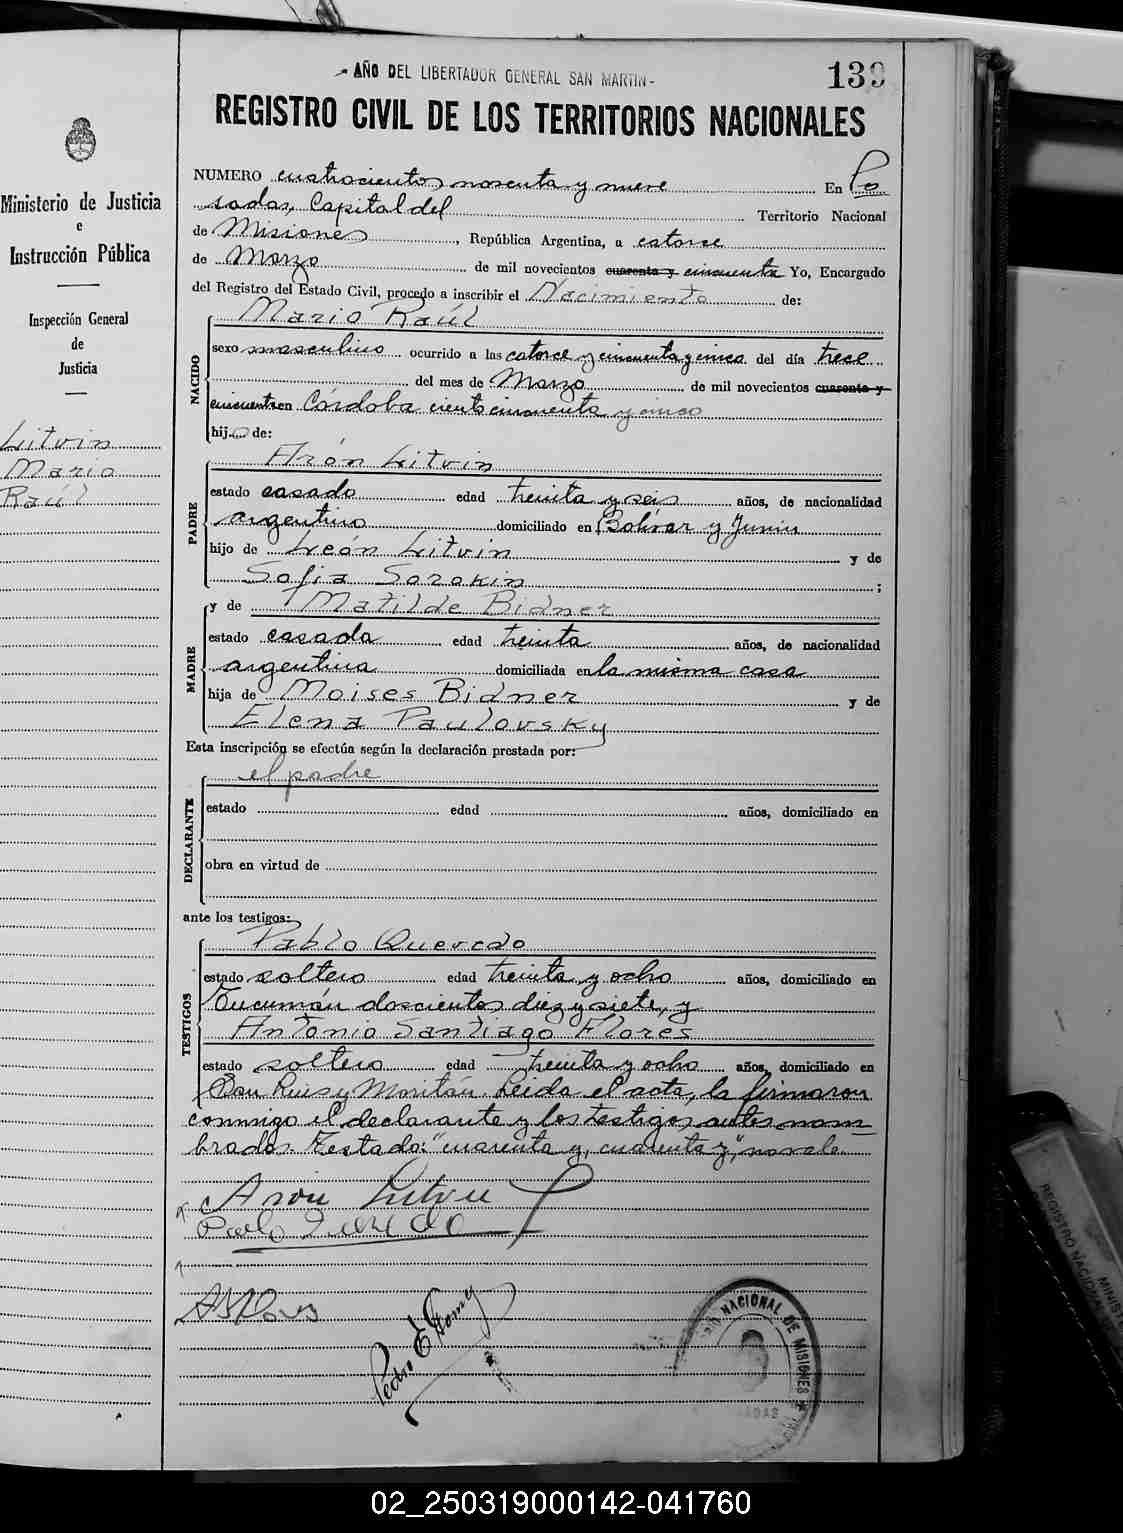 - AÑO DEL LIBERTADOR GENERAL SAN MARTIN -
139
REGISTRO CIVIL DE LOS TERRITORIOS NACIONALES
Ministerio de Justicia
e
Instrucción Pública
Inspección General
de
Justicia
Litvin
Mario
Raúl
NUMERO cuatrocientos noventa y nueve En Po
sadas, Capital del Territorio Nacional
de Misiones, República Argentina, a catorce
de Marzo de mil novecientos cuarenta y cincuenta Yo, Encargado
del Registro del Estado Civil, procedo a inscribir el Nacimiento de:
NACIDO
Mario Raúl
sexo masculino ocurrido a las catorce y cincuenta y cinco del día trece
del mes de Marzo de mil novecientos cuarenta y
cincuenta en Córdoba ciento cincuenta y cinco
hijo de:
PADRE
Arón Litvin
estado casado edad treinta y seis años, de nacionalidad
argentino domiciliado en Bolívar y Junín
hijo de León Litvin y de
Sofia Sorokin ;
MADRE
y de Matilde Bidner
estado casada edad treinta años, de nacionalidad
argentina domiciliada en la misma casa
hija de Moises Bidner y de
Elena Paulovsky
Esta inscripción se efectúa según la declaración prestada por:
DECLARANTE
el padre
estado edad años, domiciliado en
obra en virtud de
ante los testigos:
TESTIGOS
Pablo Quevedo
estado soltero edad treinta y ocho años, domiciliado en
Tucumán doscientos diez y siete, y
Antonio Santiago Flores
estado soltero edad treinta y ocho años, domiciliado en
San Luis y Moritán. Leida el acta, la firmaron
conmigo el declarante y los testigos antes nom-
brados. Testado: "cuarenta y, cuarenta y", no vale.
Aron Litvin
Pablo Quevedo
ASFlores
Pedro E Gomez
NACIONAL DE MISIONES
REGISTRO NACIONAL
MINISTE
02_250319000142-041760